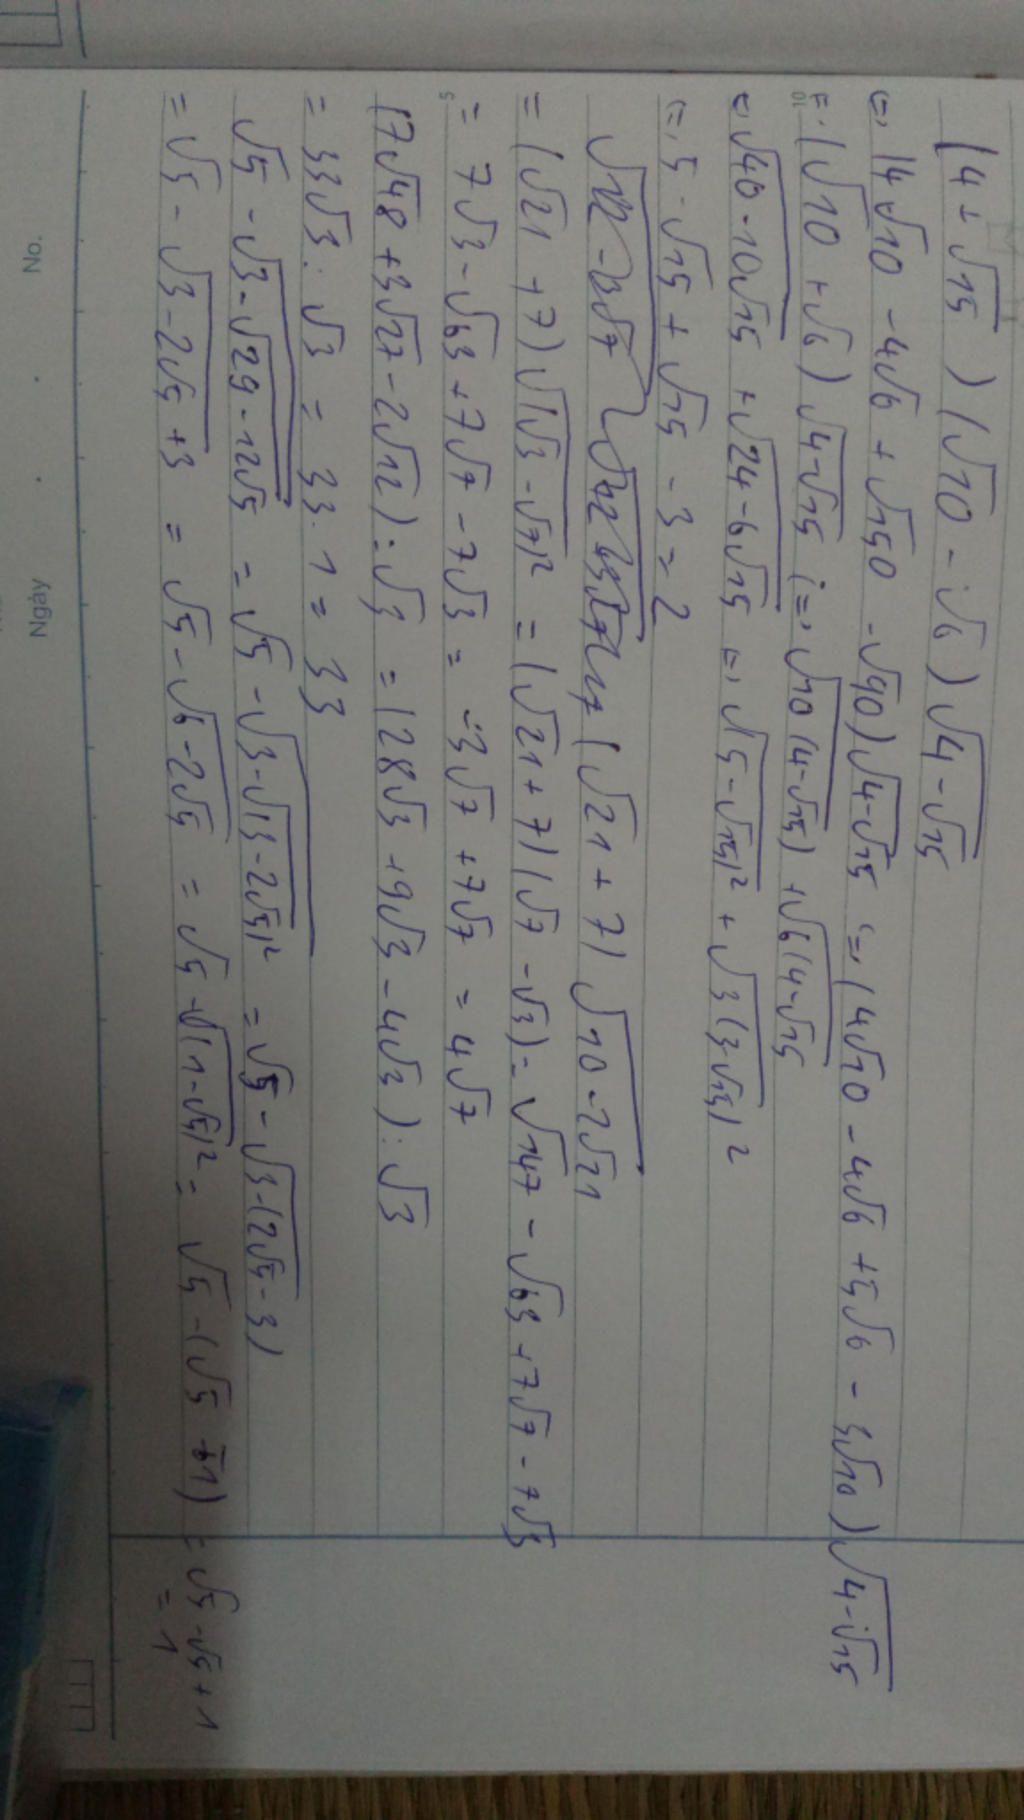 (4 + √15) (√10 - √6) √4-√15
<=> (4√10 - 4√6 + √150 - √90) √4-√15 <=> (4√10 - 4√6 + 5√6 - 3√10) √4-√15
<=> (√10 + √6) √4-√15 <=> √10(4-√15) + √6(4-√15
<=> √40-10√15 + √24-6√15 <=> √(5-√15)² + √3(3-√15)²
<=> 5 - √15 + √15 - 3 = 2
(√21 + 7) √10-2√21
= (√21 + 7) √(√3-√7)² = (√21 + 7)(√7 - √3) = √147 - √63 + 7√7 - 7√3
= 7√3 - √63 + 7√7 - 7√3 = -3√7 + 7√7 = 4√7
(7√48 + 3√27 - 2√12) : √3 = (28√3 + 9√3 - 4√3) : √3
= 33√3 : √3 = 33.1 = 33
√5 - √3-√29-12√5 = √5 - √3-√(3-2√5)² = √5 - √3-(2√5-3)
= √5 - √3-2√5+3 = √5 - √6-2√5 = √5 - √(1-√5)² = √5 - (√5 - 1) = √5 - √5 + 1
= 1
No.
Ngày
5
10